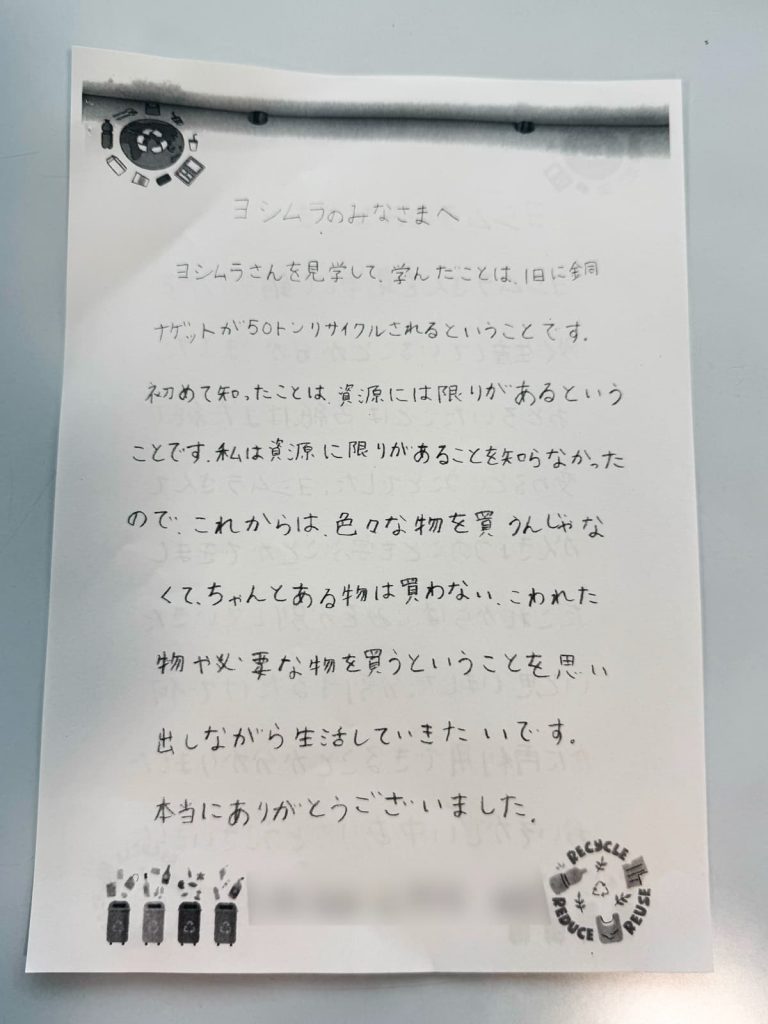 ヨシムラのみなさまへ
ヨシムラさんを見学して、学んだことは、1日に銅
ナゲットが50トンリサイクルされるということです。
初めて知ったことは、資源には限りがあるという
ことです。私は資源に限りがあることを知らなかった
ので、これからは、色々な物を買うんじゃな
くて、ちゃんとある物は買わない、こわれた
物や必要な物を買うということを思い
出しながら生活していきたいです。
本当にありがとうございました。
RECYCLE
REDUCE
REUSE